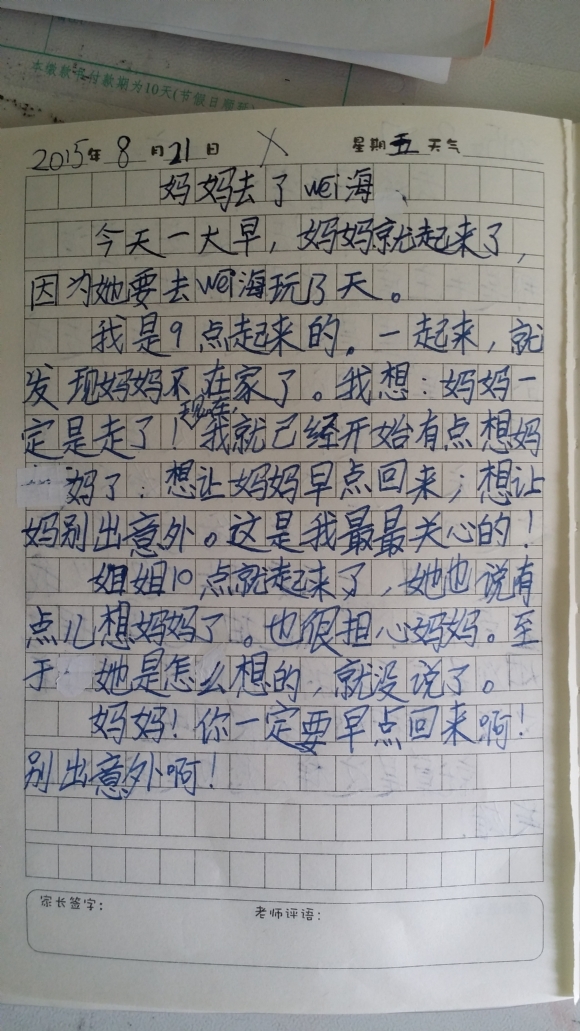 本缴款书付款期为10天(节假日顺延
2015年 8 月 21 日 星期 五 天气
妈妈去了wei海
今天一大早，妈妈就起来了，
因为她要去wei海玩了3天。
我是9点起来的。一起来，就
发现妈妈不在家了。我想：妈妈一
定是走了！现在，我就已经开始有点想妈
妈了：想让妈妈早点回来；想让
妈别出意外。这是我最最关心的！
姐姐10点就起来了，她也说有
点儿想妈妈了。也很担心妈妈。至
于她是怎么想的，就没说了。
妈妈！你一定要早点回来啊！
别出意外啊！
家长签字： 老师评语：